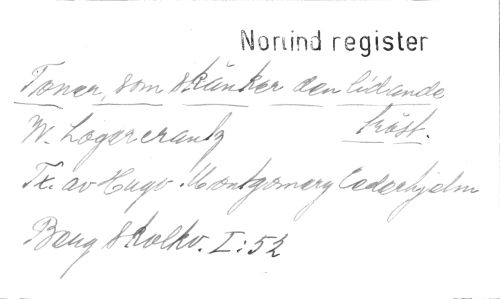 Norlind register
Toner, som skänker den lidande
tröst.
W. Lagercrantz
Tx. av Hugo Montgomery Cederhjelm
Beng Skolkv. I:52